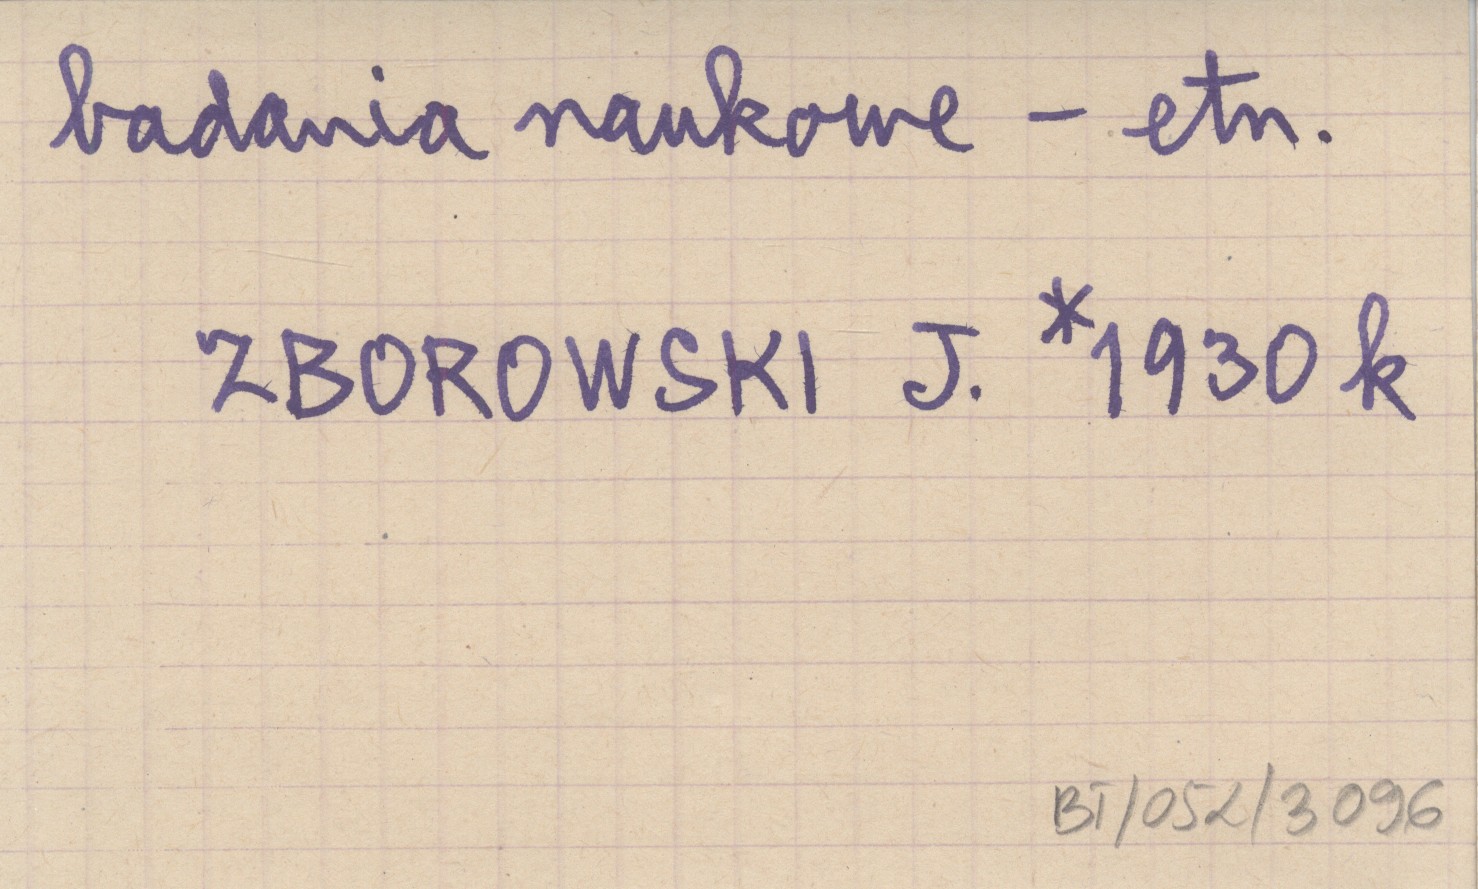 badania naukowe – etn.
ZBOROWSKI J. *1930 k
BT/052/3096